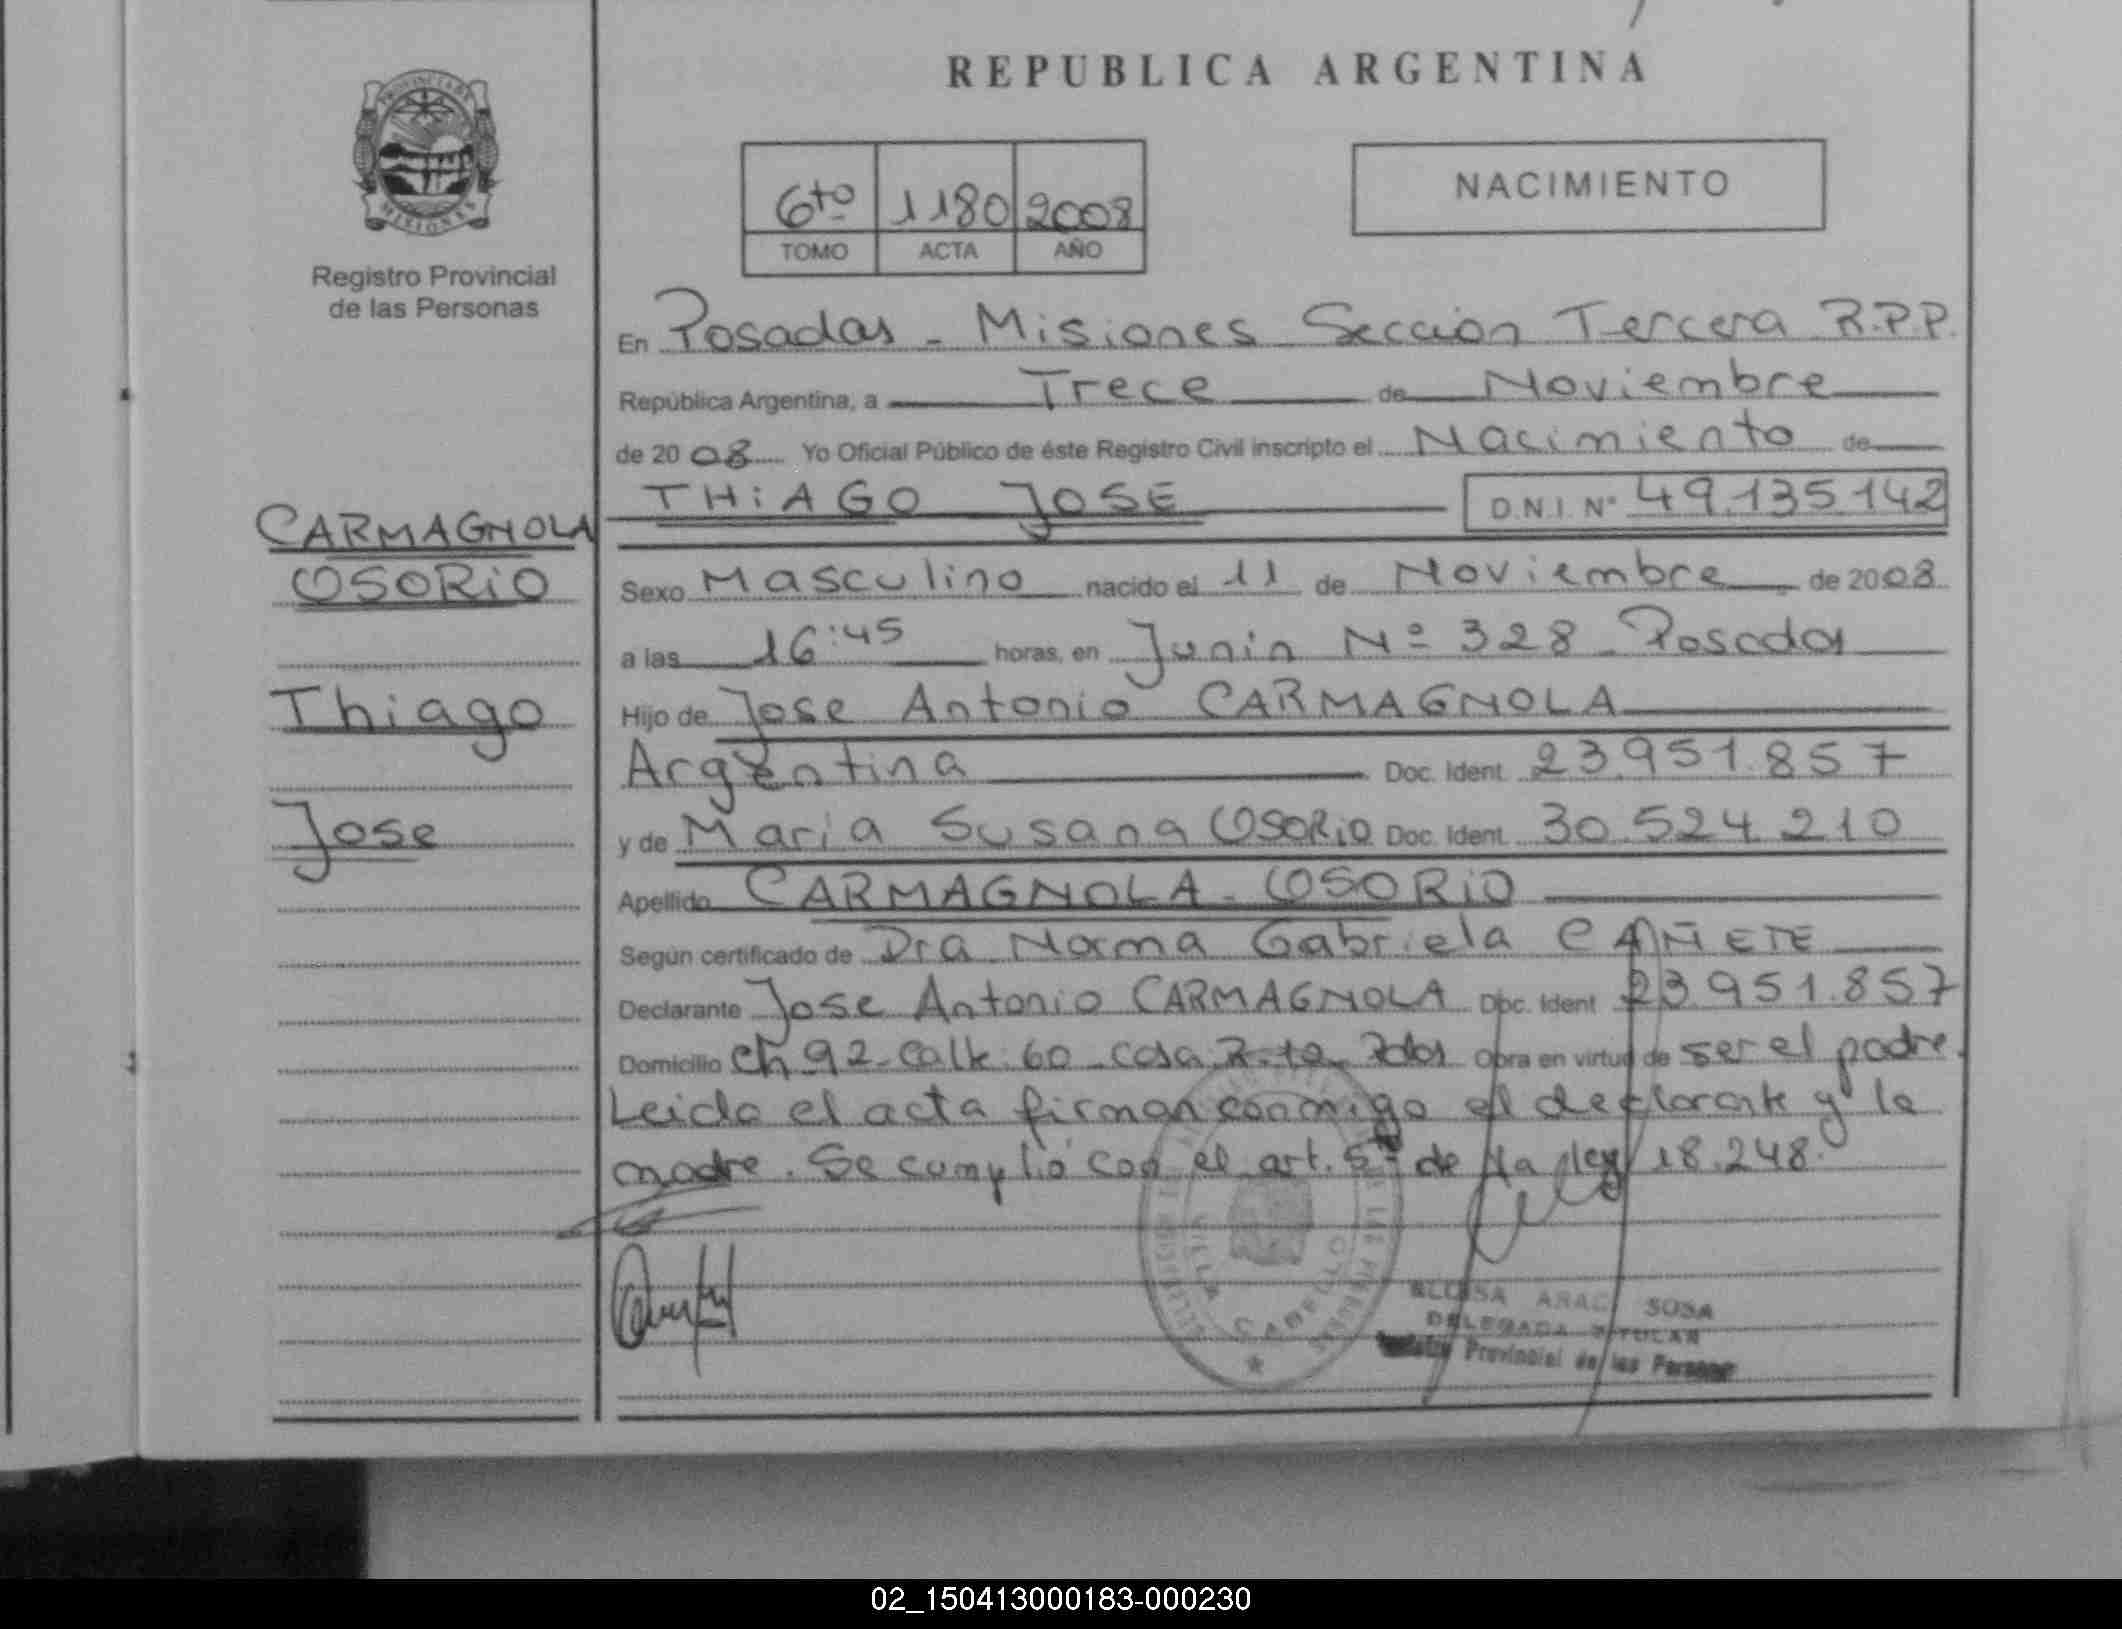 REPUBLICA ARGENTINA
PROVINCIA DE
MISIONES
Registro Provincial
de las Personas
6to 1180 2008
TOMO ACTA AÑO
NACIMIENTO
En Posadas - Misiones Seccion Tercera R.P.P.
República Argentina, a Trece de Noviembre
de 2008 Yo Oficial Público de éste Registro Civil inscripto el Nacimiento de
THiAGO JOSE D.N.I. Nº 49.135.142
CARMAGNOLA
OSORiO
Thiago
Jose
Sexo Masculino nacido el 11 de Noviembre de 2008
a las 16:45 horas, en Junin Nº 328 - Posadas
Hijo de Jose Antonio CARMAGNOLA
Argentina Doc. Ident. 23.951.857
y de Maria Susana OSORiO Doc. Ident. 30.524.210
Apellido CARMAGNOLA - OSORiO
Según certificado de Dra Norma Gabriela CAÑETE
Declarante Jose Antonio CARMAGNOLA Doc. Ident. 23.951.857
Domicilio Ch 92 - Calle 60 - Casa Pdas Obra en virtud de ser el padre.
Leida el acta firman conmigo el declarante y la
madre. Se cumplió con el art. 5º de la ley 18.248.
VILLA CABELLO
SOSA
DELEGADA TITULAR
Provincial de las Personas
02_150413000183-000230